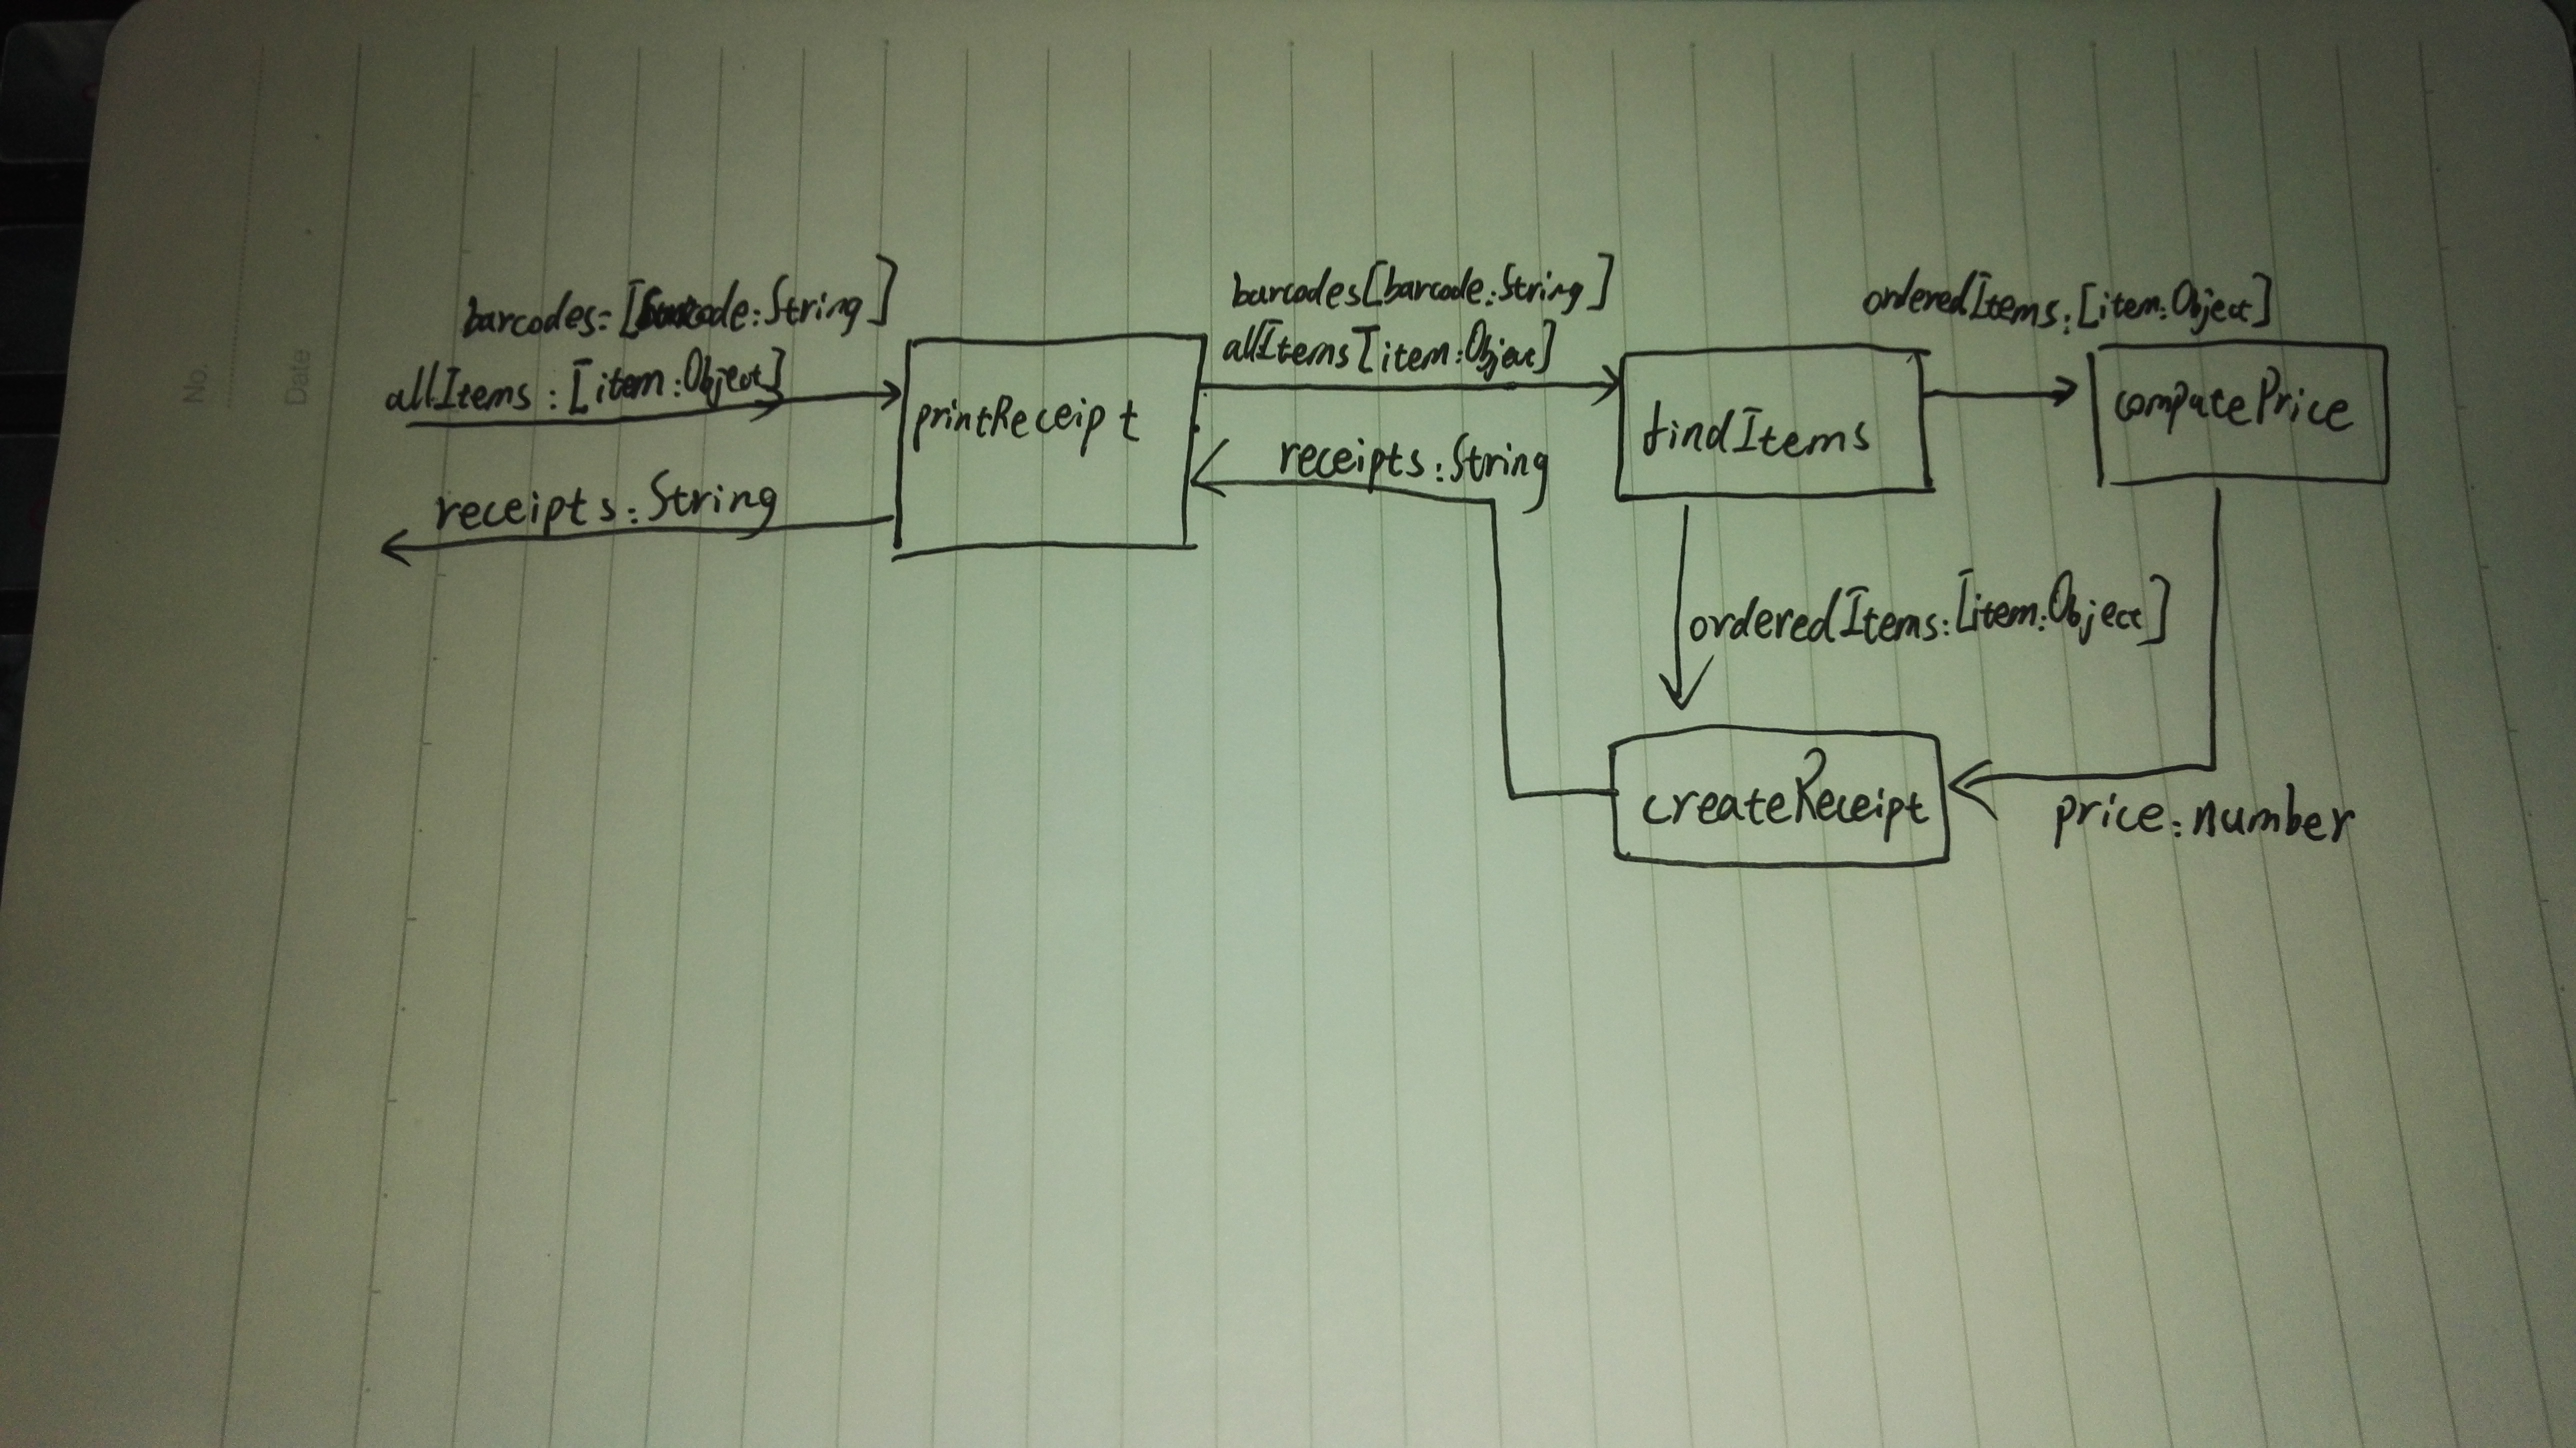 No.
Date
barcodes=[barcode:String]
allItems:[item:Object]
receipts:String
printReceipt
barcodes[barcode:String]
allItems[item:Object]
receipts:String
findItems
orderedItems:[item:Object]
computePrice
orderedItems:[item:Object]
createReceipt
price:number